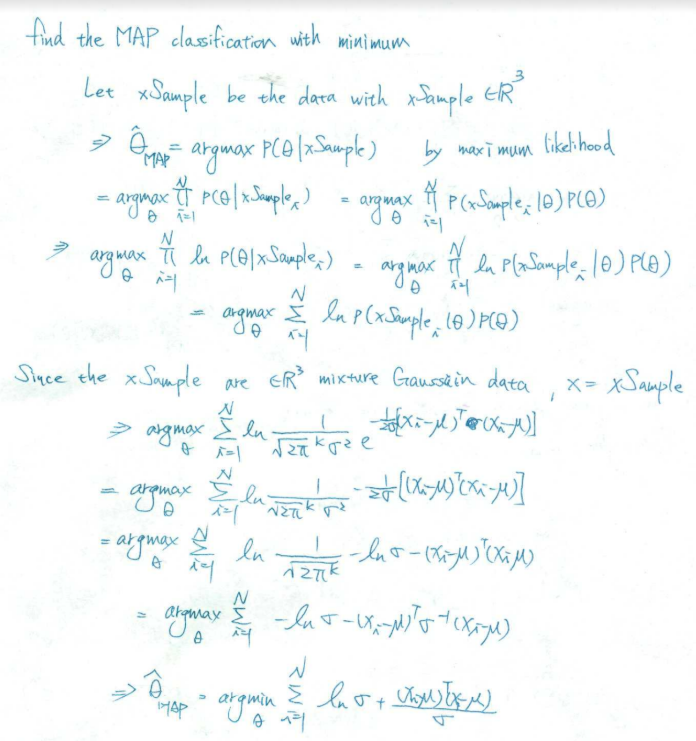 find the MAP classification with minimum
Let xSample be the data with xSample ∈ℝ³
⇒ θ̂_MAP = argmax P(θ|xSample) by maximum likelihood
= argmax_θ ∏_{i=1}^N P(θ|xSample_i) = argmax_θ ∏_{i=1}^N P(xSample_i|θ)P(θ)
⇒ argmax_θ ∏_{i=1}^N ln P(θ|xSample_i) = argmax_θ ∏_{i=1}^N ln P(xSample_i|θ)P(θ)
= argmax_θ ∑_{i=1}^N ln P(xSample_i|θ)P(θ)
Since the xSample are ∈ℝ³ mixture Gaussain data , x = xSample
⇒ argmax_θ ∑_{i=1}^N ln 1/(√2π^k σ²) e^{-1/2σ[(x_i-μ)^T σ(x_i-μ)]}
= argmax_θ ∑_{i=1}^N ln 1/(√2π^k σ²) - 1/2σ [(x_i-μ)^T(x_i-μ)]
= argmax_θ ∑_{i=1}^N ln 1/√2π^k - ln σ - (x_i-μ)^T(x_i μ)
= argmax_θ ∑_{i=1}^N - ln σ - (x_i-μ)^T σ^{-1}(x_i-μ)
⇒ θ̂_MAP = argmin_θ ∑_{i=1}^N ln σ + (x_i-μ)^T(x_i-μ)/σ